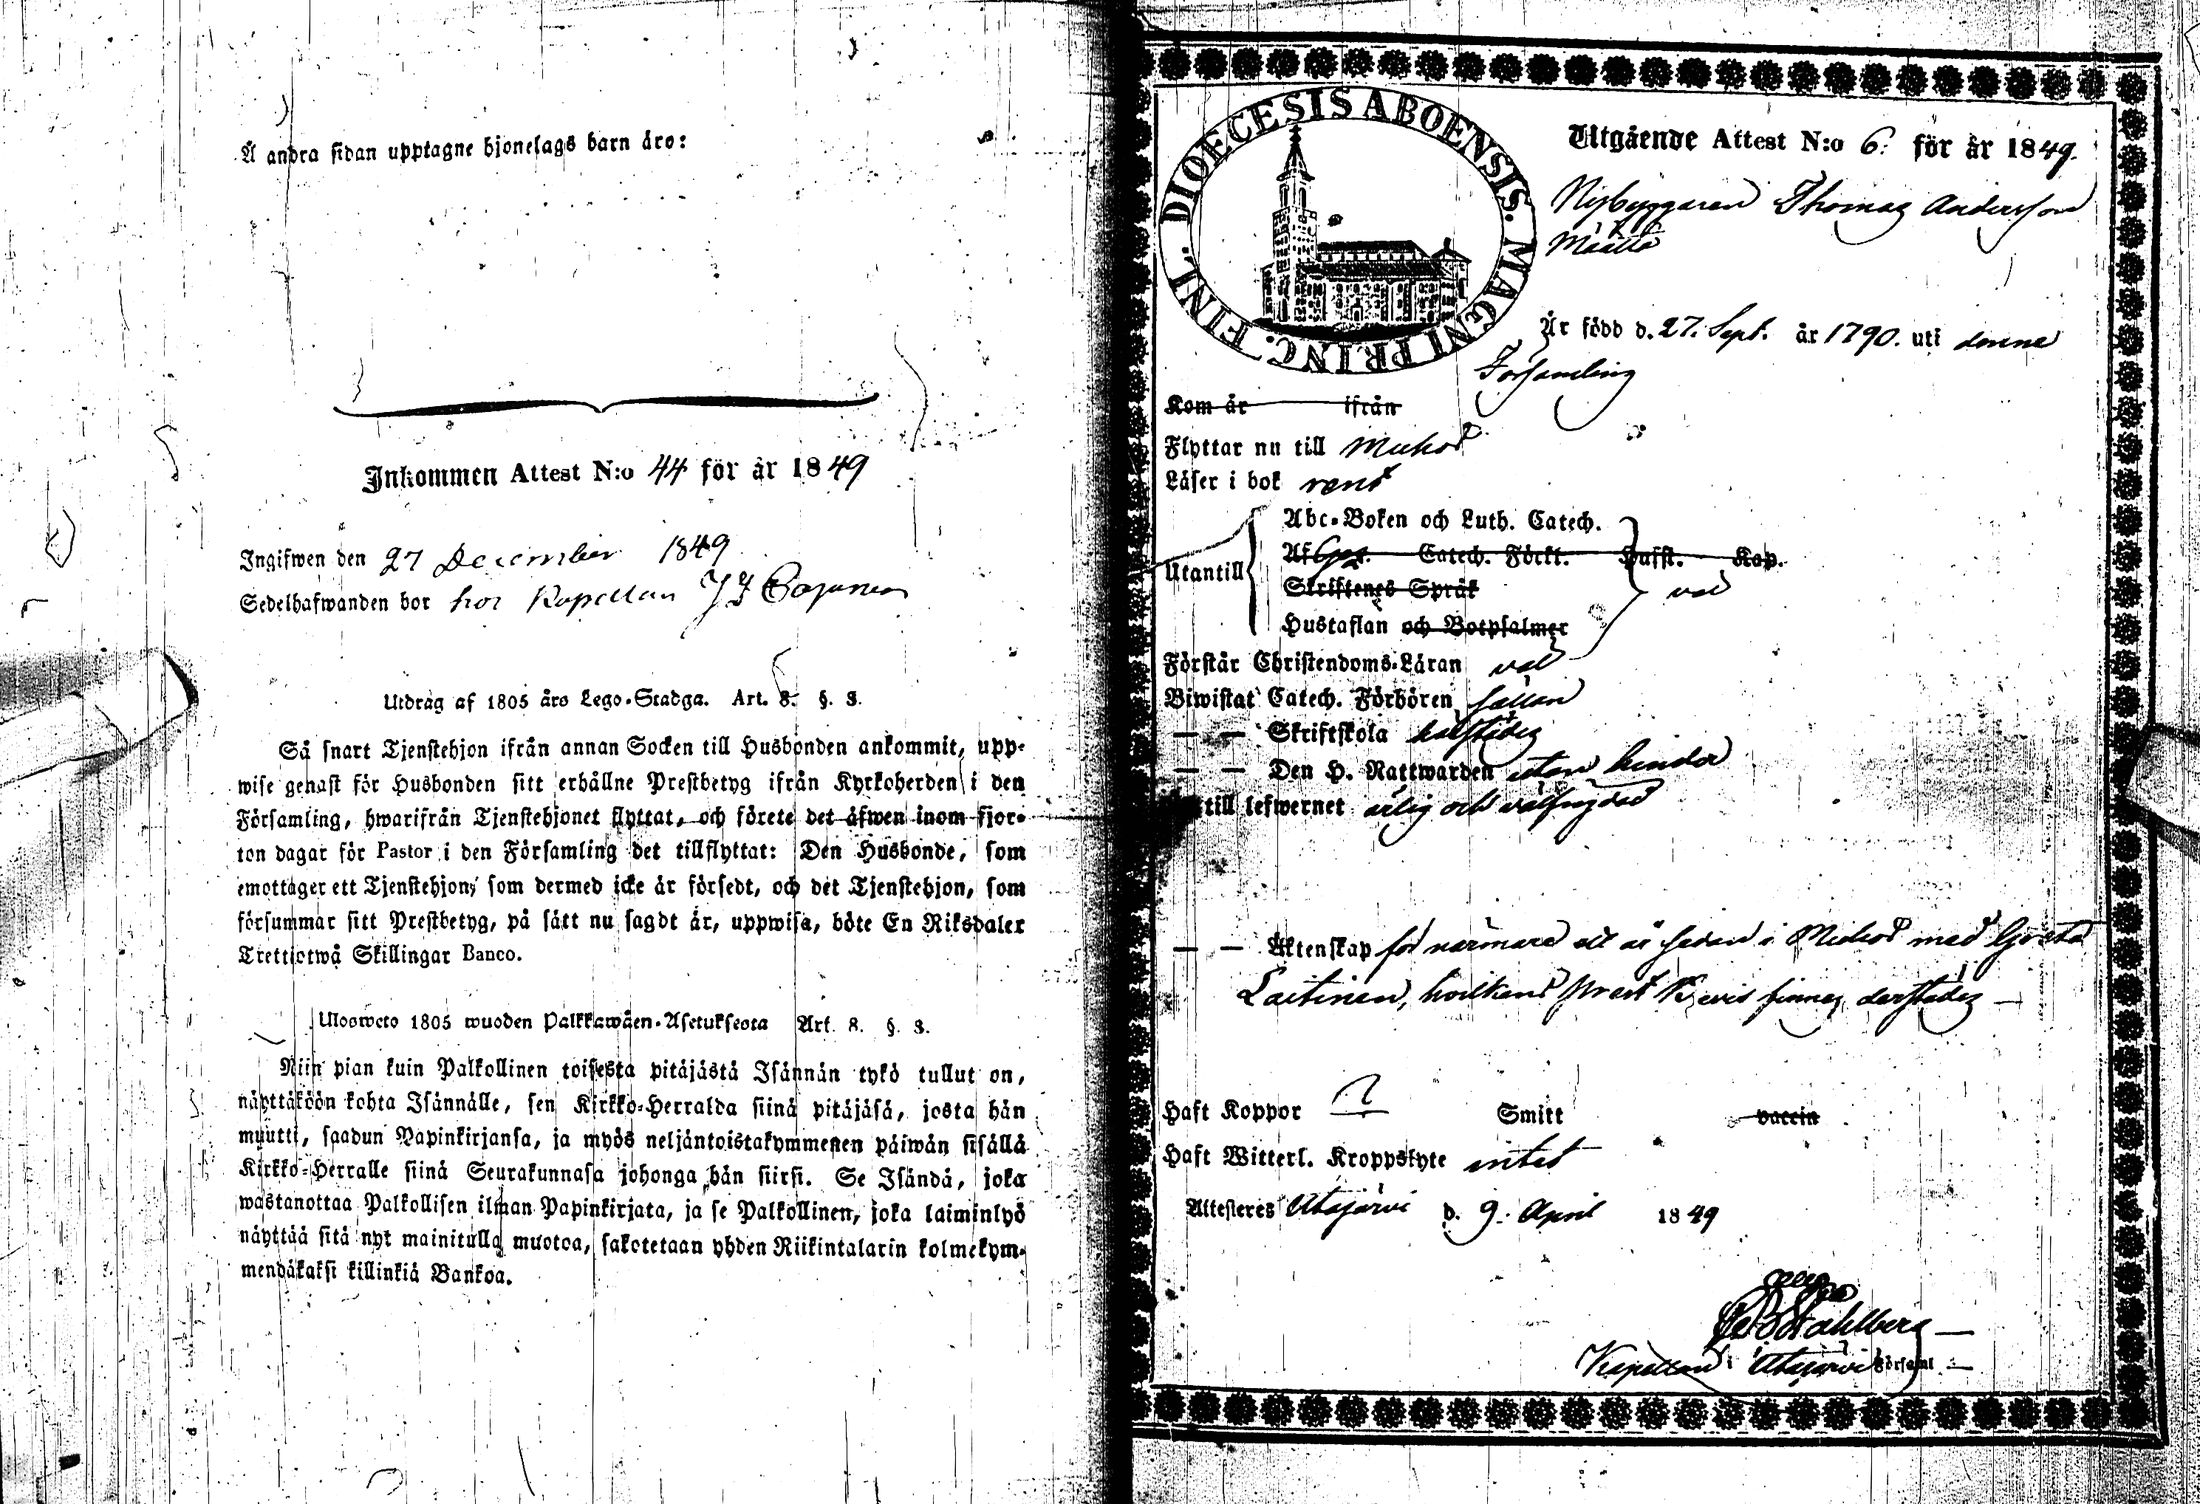 Å andra sidan upptagne hjonelags barn äro:
Inkommen Attest N:o 44 för år 1849
Ingifwen den 27 December 1849
Sedelhafwanden bor hos Kapellan
Utdrag af 1805 års Lego-Stadga. Art. 8. §. 3.
Så snart Tjenstehjon ifrån annan Socken till Husbonden ankommit, upp-
wise genast för Husbonden sitt erhållne Prestbetyg ifrån Kyrkoherden i den
Församling, hwarifrån Tjenstehjonet flyttat, och förete det äfwen inom fjor-
ton dagar för Pastor i den Församling det tillflyttat: Den Husbonde, som
emottager ett Tjenstehjon, som dermed icke är försedt, och det Tjenstehjon, som
försummar sitt Prestbetyg, på sätt nu sagdt är, uppwisa, böte En Riksdaler
Trettiotwå Skillingar Banco.
Ulosweto 1805 wuoden Palkkawäen-Asetuksesta Art. 8. §. 3.
Niin pian kuin Palkollinen toisesta pitäjästä Isännän tykö tullut on,
näyttäköön kohta Isännälle, sen Kirkko-Herralda siinä pitäjäsä, josta hän
muutti, saadun Papinkirjansa, ja myös neljäntoistakymmenen päiwän sisällä
Kirkko-Herralle siinä Seurakunnasa johonga hän siirsi. Se Isändä, joka
wastanottaa Palkollisen ilman Papinkirjata, ja se Palkollinen, joka laiminlyö
näyttää sitä nyt mainitulla muotoa, sakotetaan yhden Riikintalarin kolmekym-
mendäkaksi killinkiä Bankoa.
DIOECESIS ABOENSIS. MAGNI PRINC. FINL.
Utgående Attest N:o 6. för år 1849.
Nybyggaren Thomas Andersson
Määttä
Är född d. 27. Sept. år 1790. uti denne
Församling
Kom år ifrån
Flyttar nu till Muhos
Läser i bok rent
Abc-Boken och Luth. Catech.
Af Catech. Förkl. Hufst. Kap.
Utantill
Skriftenes Språk
Hustaflan och Botpsalmer
Förstår Christendoms-Läran
Biwistat Catech. Förhören sällan
— — Skriftskola
— — Den H. Nattwarden utan hinder
till lefwernet ärlig och välfrejdad
— — Äktenskap för närmare ett år sedan i Muhos med Greta
Laitinen, hvilkens Prest Bevis finnes derstädes —
Haft Koppor ? Smitt vaccin
Haft Witterl. Kroppslyte intet
Attesteres Utajärvi d. 9. April 1849
Stahlberg —
Kapellan i Utajärvi Församl. —